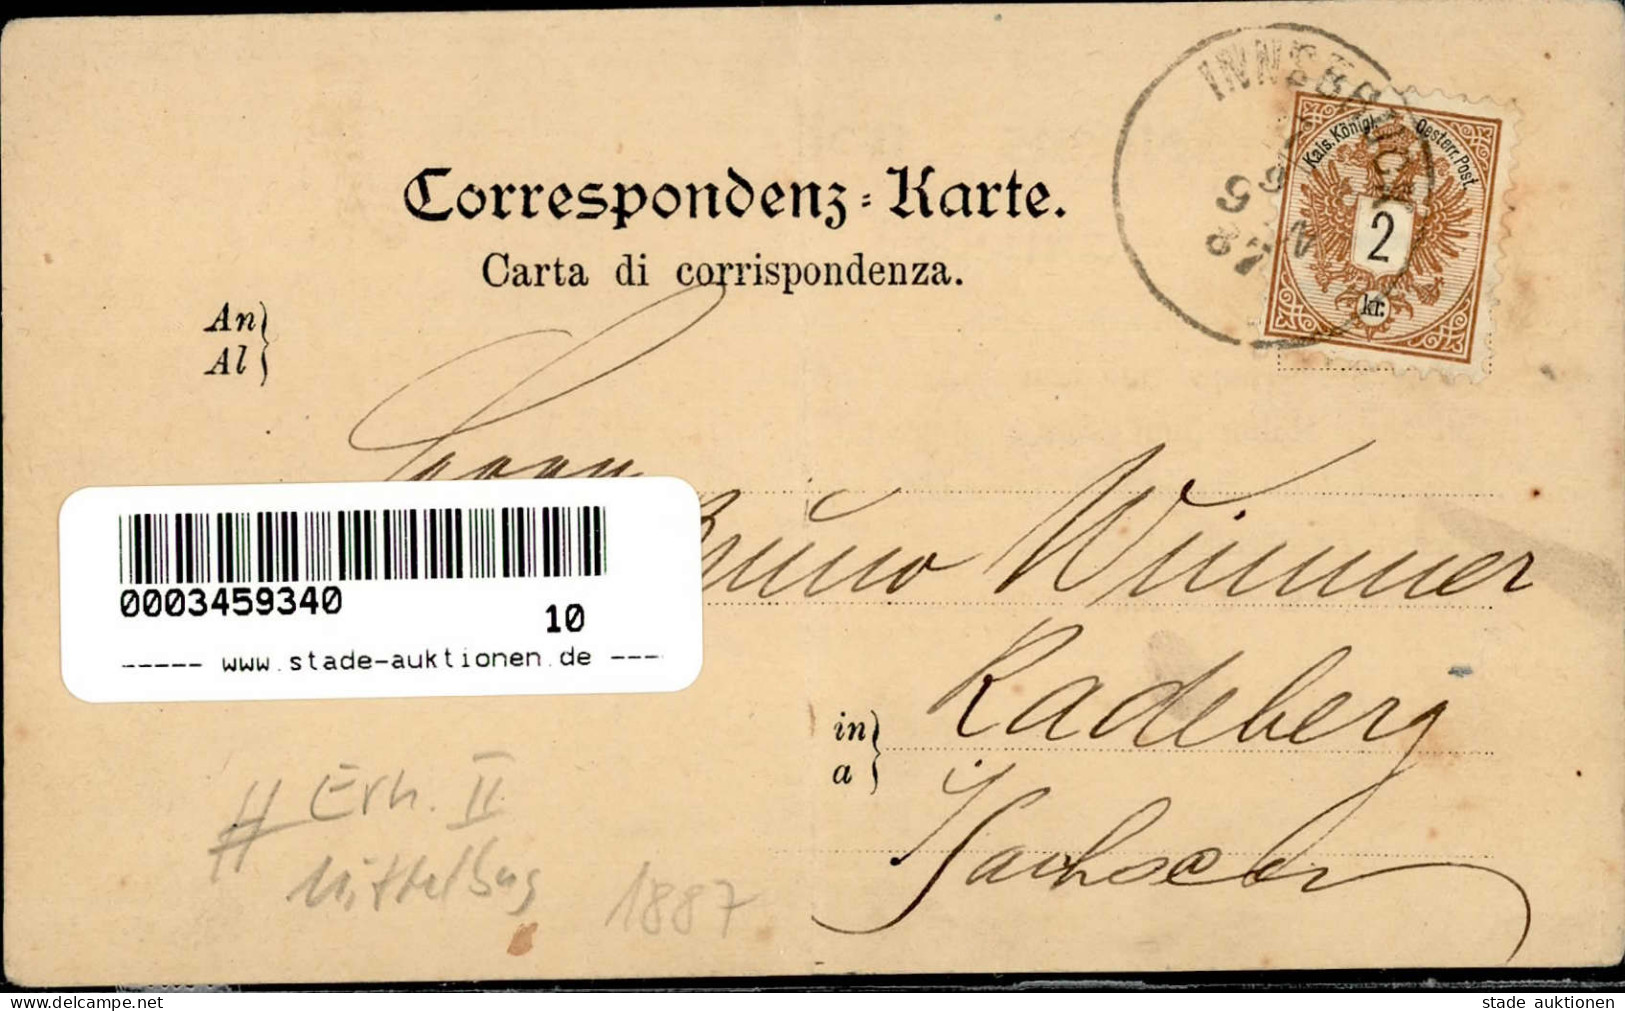 INNSBRUCK
Kais. Königl. Oesterr. Post.
2
kr.
Correspondenz-Karte.
Carta di corrispondenza.
An
Al
Herrn
Bruno Wimmer
0003459340
10
----- www.stade-auktionen.de ---
in
a
Radeberg
Sachsen
# Erh. II
Mittelbug 1887
stade auktionen